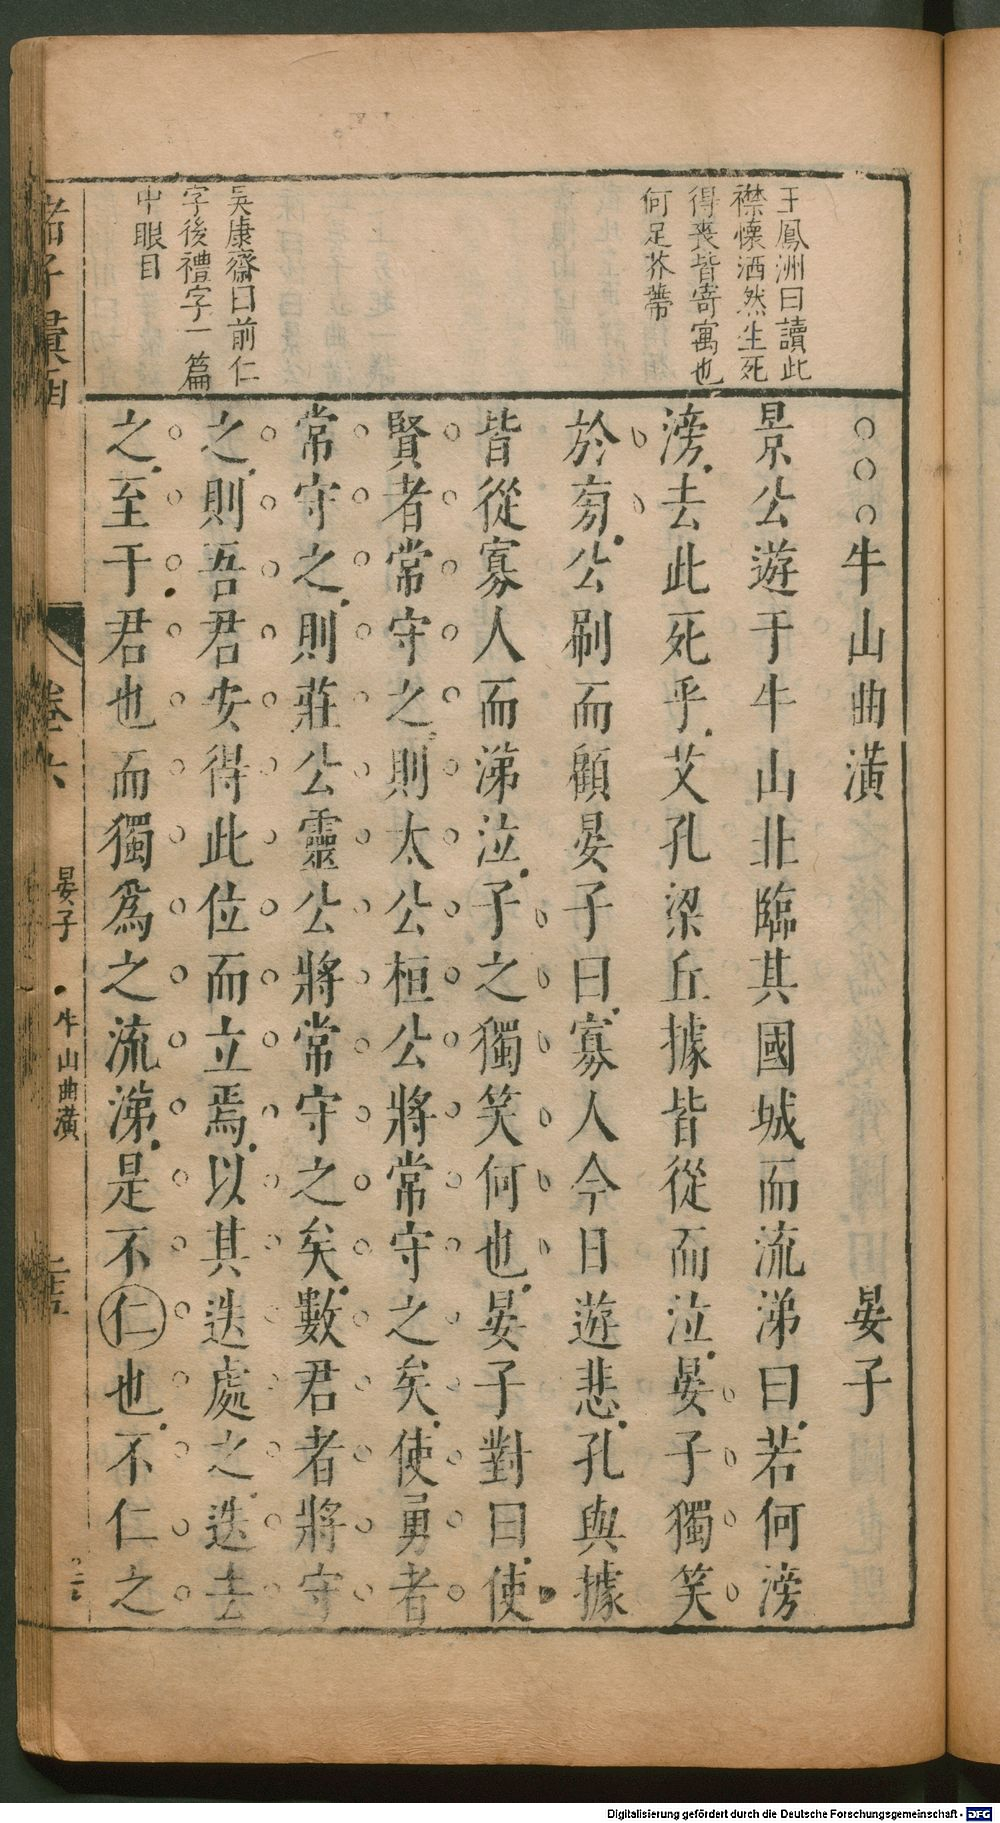 王鳳洲曰讀此
襟懷洒然生死
得喪皆寄寓也
何足芥蔕
吳康齋曰前仁
字後禮字一篇
中眼目
牛山曲潢 晏子
景公遊于牛山北臨其國城而流涕曰若何滂
滂去此死乎艾孔梁丘據皆從而泣晏子獨笑
於旁公刷而顧晏子曰寡人今日遊悲孔與據
皆從寡人而涕泣子之獨笑何也晏子對曰使
賢者常守之則太公桓公將常守之矣使勇者
常守之則莊公靈公將常守之矣數君者將守
之則吾君安得此位而立焉以其迭處之迭去
之至于君也而獨爲之流涕是不仁也不仁之
諸子彙函
卷六
晏子 牛山曲潢
Digitalisierung gefördert durch die Deutsche Forschungsgemeinschaft - DFG